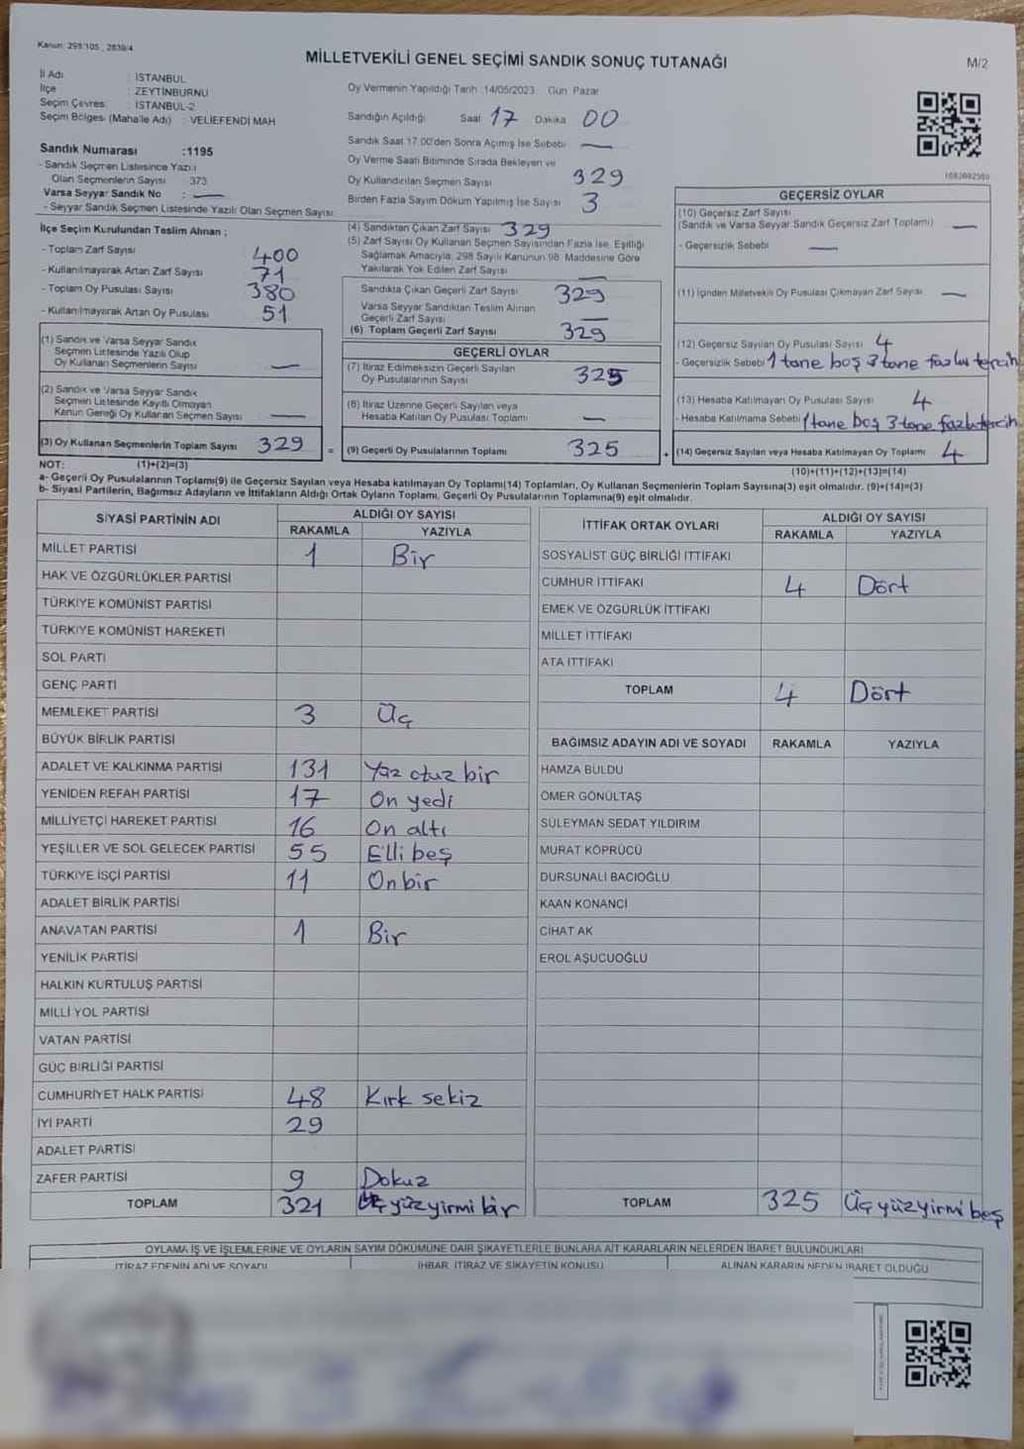 Kanun: 298/105 , 2839/4
MİLLETVEKİLİ GENEL SEÇİMİ SANDIK SONUÇ TUTANAĞI
M/2
İl Adı : İSTANBUL
İlçe : ZEYTİNBURNU
Seçim Çevresi : İSTANBUL-2
Seçim Bölgesi (Mahalle Adı) : VELİEFENDİ MAH
Oy Vermenin Yapıldığı Tarih 14/05/2023 Gün Pazar
Sandığın Açıldığı Saat 17 Dakika 00
Sandık Saat 17.00'den Sonra Açımış İse Sebebi —
Oy Verme Saati Bitiminde Sırada Bekleyen ve
Oy Kullandırılan Seçmen Sayısı 329
Birden Fazla Sayım Döküm Yapılmış İse Sayısı 3
Sandık Numarası :1195
- Sandık Seçmen Listesince Yazılı
Olan Seçmenlerin Sayısı 373
Varsa Seyyar Sandık No : —
- Seyyar Sandık Seçmen Listesinde Yazılı Olan Seçmen Sayısı
İlçe Seçim Kurulundan Teslim Alınan ;
- Toplam Zarf Sayısı 400
- Kullanılmayarak Artan Zarf Sayısı 71
- Toplam Oy Pusulası Sayısı 380
- Kullanılmayarak Artan Oy Pusulası 51
(1) Sandık ve Varsa Seyyar Sandık
Seçmen Listesinde Yazılı Olup
Oy Kullanan Seçmenlerin Sayısı —
(2) Sandık ve Varsa Seyyar Sandık
Seçmen Listesinde Kayıtlı Olmayan
Kanun Gereği Oy Kullanan Seçmen Sayısı —
(3) Oy Kullanan Seçmenlerin Toplam Sayısı 329
(1)+(2)=(3)
(4) Sandıktan Çıkan Zarf Sayısı 329
(5) Zarf Sayısı Oy Kullanan Seçmen Sayısından Fazla İse, Eşitliği
Sağlamak Amacıyla, 298 Sayılı Kanunun 98. Maddesine Göre
Yakılarak Yok Edilen Zarf Sayısı —
Sandıkta Çıkan Geçerli Zarf Sayısı 329
Varsa Seyyar Sandıktan Teslim Alınan
Geçerli Zarf Sayısı —
(6) Toplam Geçerli Zarf Sayısı 329
GEÇERLİ OYLAR
(7) İtiraz Edilmeksizin Geçerli Sayılan
Oy Pusulalarının Sayısı 325
(8) İtiraz Üzerine Geçerli Sayılan veya
Hesaba Katılan Oy Pusulası Toplamı —
= (9) Geçerli Oy Pusulalarının Toplamı 325
GEÇERSİZ OYLAR
(10) Geçersiz Zarf Sayısı
(Sandık ve Varsa Seyyar Sandık Geçersiz Zarf Toplamı) —
- Geçersizlik Sebebi —
(11) İçinden Milletvekili Oy Pusulası Çıkmayan Zarf Sayısı —
(12) Geçersiz Sayılan Oy Pusulası Sayısı 4
- Geçersizlik Sebebi 1 tane boş 3 tane fazla tercih
(13) Hesaba Katılmayan Oy Pusulası Sayısı 4
- Hesaba Katılmama Sebebi 1 tane boş 3 tane fazla tercih
(14) Geçersiz Sayılan veya Hesaba Katılmayan Oy Toplamı 4
(10)+(11)+(12)+(13)=(14)
NOT:
a- Geçerli Oy Pusulalarının Toplamı(9) ile Geçersiz Sayılan veya Hesaba katılmayan Oy Toplamı(14) Toplamları, Oy Kullanan Seçmenlerin Toplam Sayısına(3) eşit olmalıdır. (9)+(14)=(3)
b- Siyasi Partilerin, Bağımsız Adayların ve İttifakların Aldığı Ortak Oyların Toplamı, Geçerli Oy Pusulalarının Toplamına(9) eşit olmalıdır.
SİYASİ PARTİNİN ADI ALDIĞI OY SAYISI
RAKAMLA YAZIYLA
MİLLET PARTİSİ 1 Bir
HAK VE ÖZGÜRLÜKLER PARTİSİ
TÜRKİYE KOMÜNİST PARTİSİ
TÜRKİYE KOMÜNİST HAREKETİ
SOL PARTİ
GENÇ PARTİ
MEMLEKET PARTİSİ 3 Üç
BÜYÜK BİRLİK PARTİSİ
ADALET VE KALKINMA PARTİSİ 131 Yüz otuz bir
YENİDEN REFAH PARTİSİ 17 On yedi
MİLLİYETÇİ HAREKET PARTİSİ 16 On altı
YEŞİLLER VE SOL GELECEK PARTİSİ 55 Elli beş
TÜRKİYE İŞÇİ PARTİSİ 11 On bir
ADALET BİRLİK PARTİSİ
ANAVATAN PARTİSİ 1 Bir
YENİLİK PARTİSİ
HALKIN KURTULUŞ PARTİSİ
MİLLİ YOL PARTİSİ
VATAN PARTİSİ
GÜÇ BİRLİĞİ PARTİSİ
CUMHURİYET HALK PARTİSİ 48 Kırk sekiz
İYİ PARTİ 29
ADALET PARTİSİ
ZAFER PARTİSİ 9 Dokuz
TOPLAM 321 Üç yüz yirmi bir
İTTİFAK ORTAK OYLARI ALDIĞI OY SAYISI
RAKAMLA YAZIYLA
SOSYALİST GÜÇ BİRLİĞİ İTTİFAKI
CUMHUR İTTİFAKI 4 Dört
EMEK VE ÖZGÜRLÜK İTTİFAKI
MİLLET İTTİFAKI
ATA İTTİFAKI
TOPLAM 4 Dört
BAĞIMSIZ ADAYIN ADI VE SOYADI RAKAMLA YAZIYLA
HAMZA BULDU
ÖMER GÖNÜLTAŞ
SÜLEYMAN SEDAT YILDIRIM
MURAT KÖPRÜCÜ
DURSUNALİ BACIOĞLU
KAAN KONANCİ
CİHAT AK
EROL AŞUCUOĞLU
TOPLAM 325 Üç yüz yirmi beş
OYLAMA İŞ VE İŞLEMLERİNE VE OYLARIN SAYIM DÖKÜMÜNE DAİR ŞİKAYETLERLE BUNLARA AİT KARARLARIN NELERDEN İBARET BULUNDUKLARI
İTİRAZ EDENİN ADI VE SOYADI İHBAR, İTİRAZ VE ŞİKAYETİN KONUSU ALINAN KARARIN NEDEN İBARET OLDUĞU